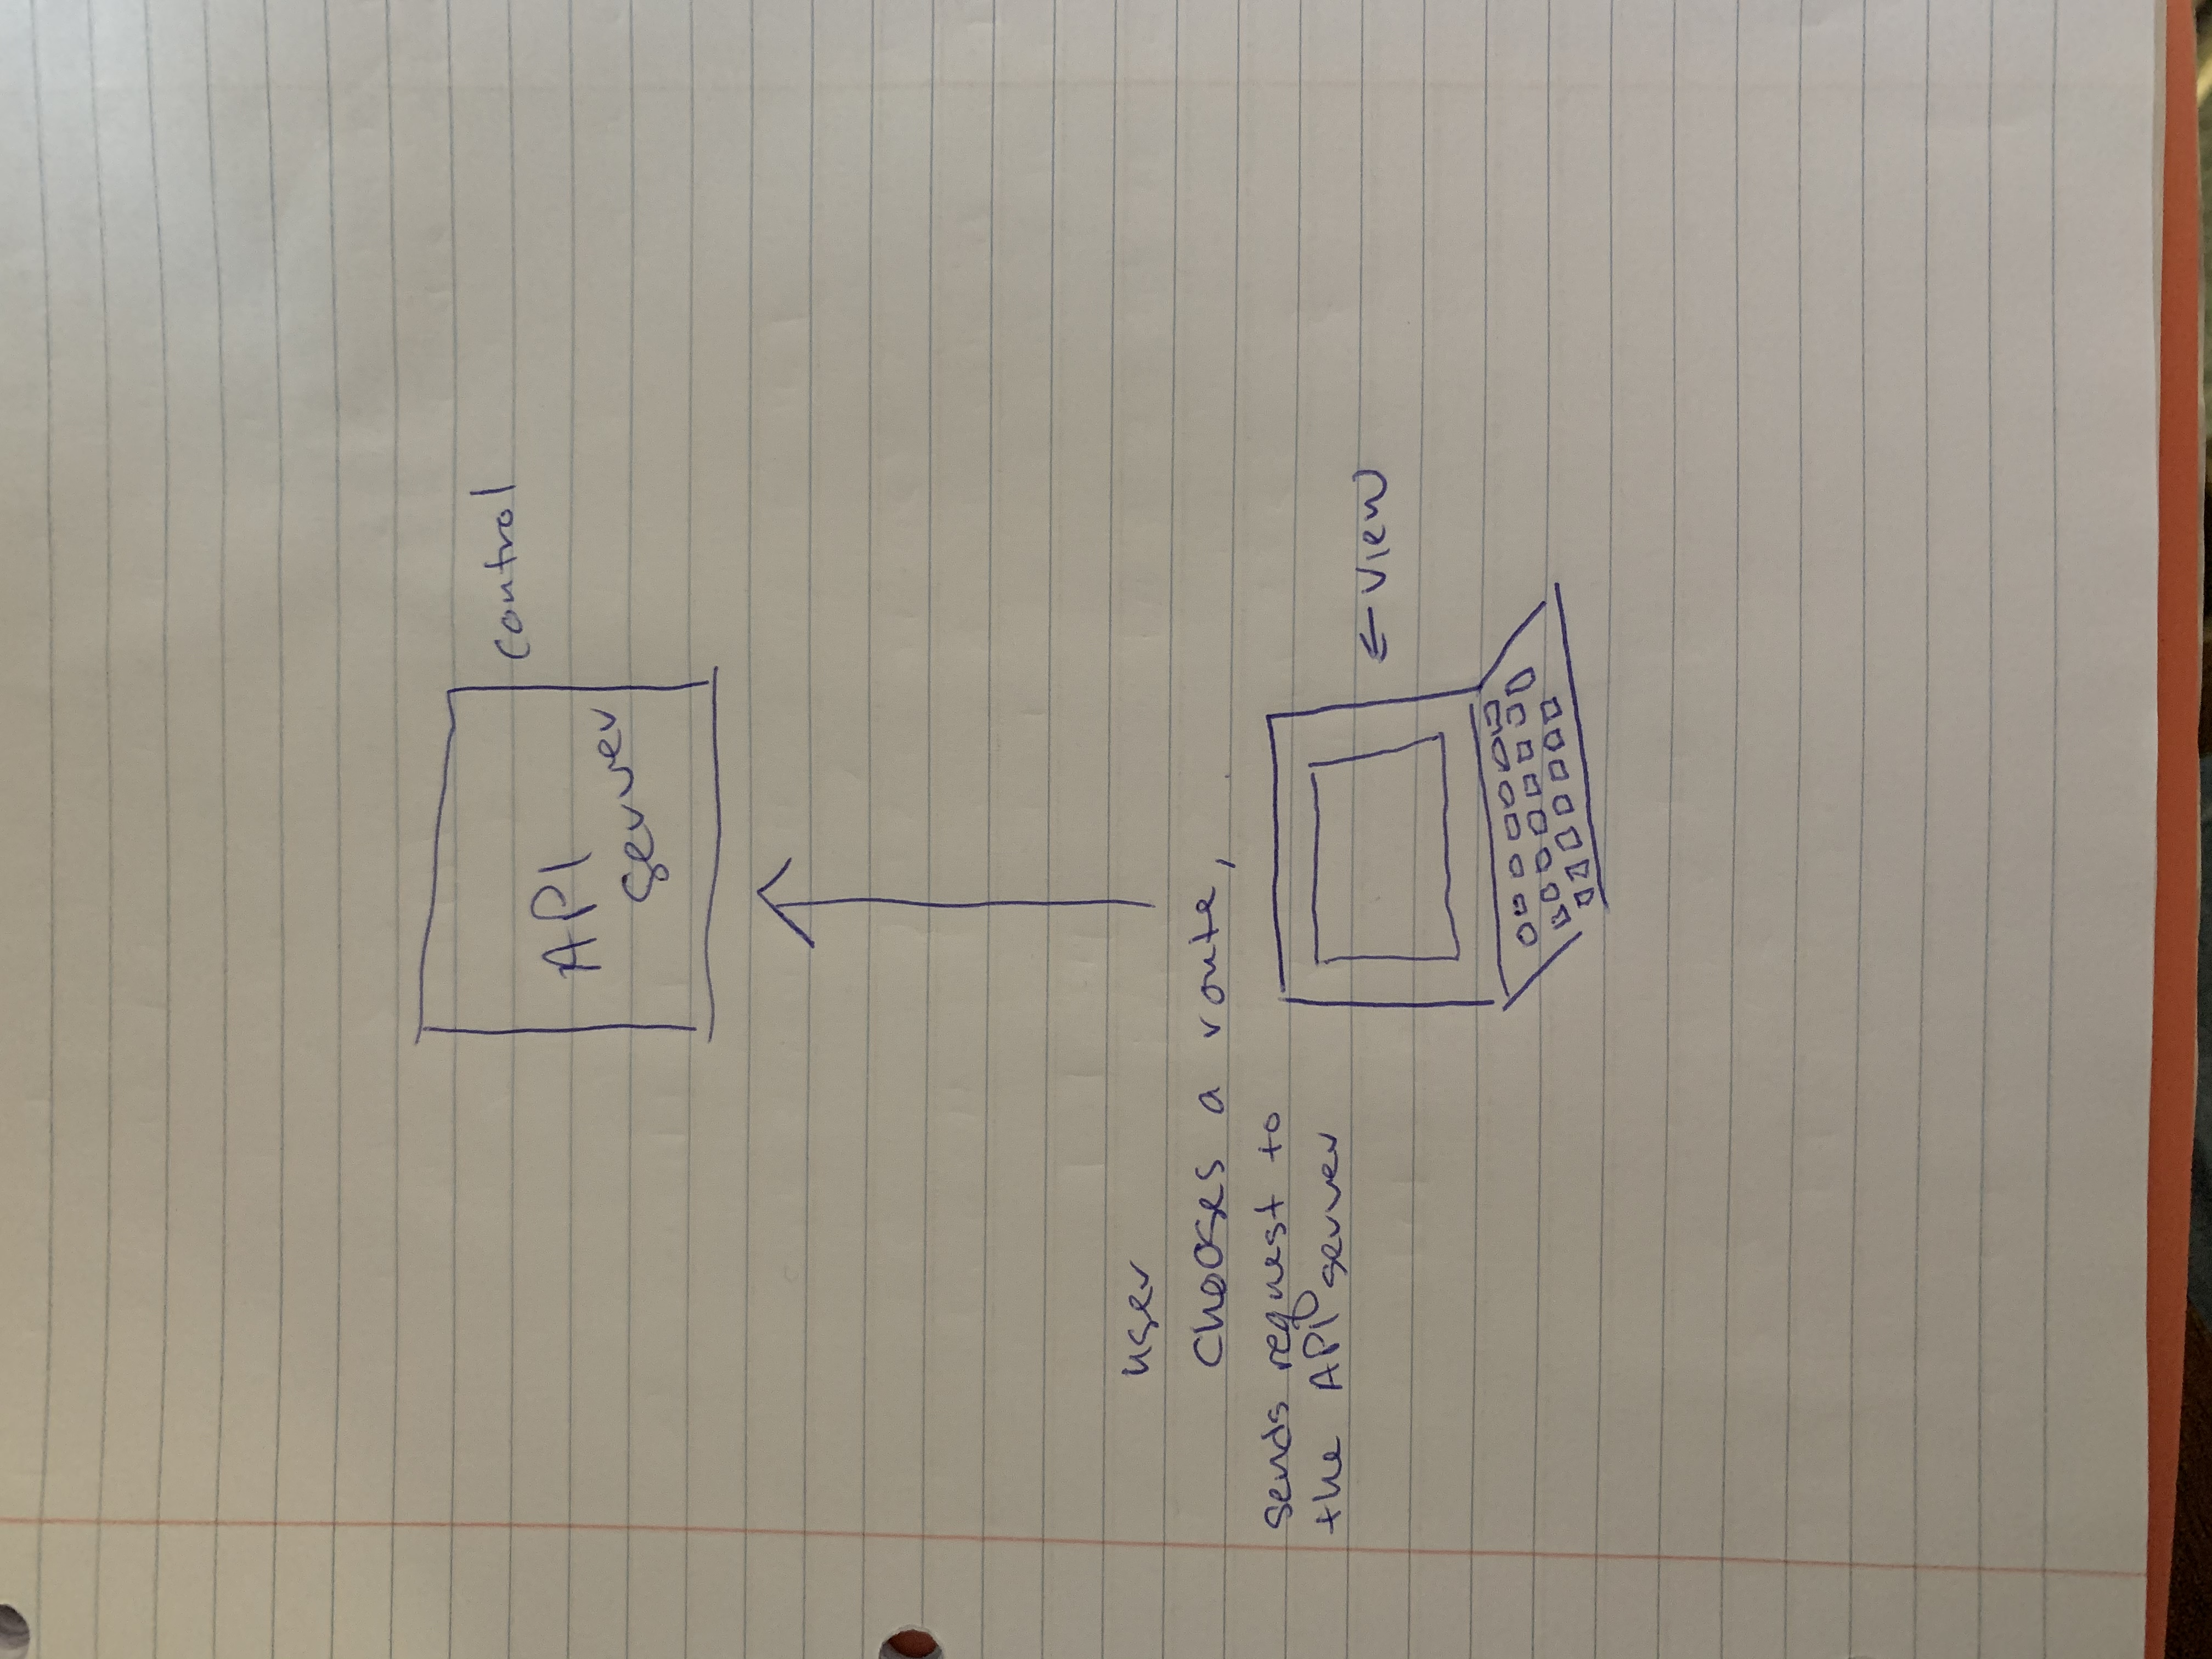 API
server
control
user
chooses a route,
sends request to
the API server
← view